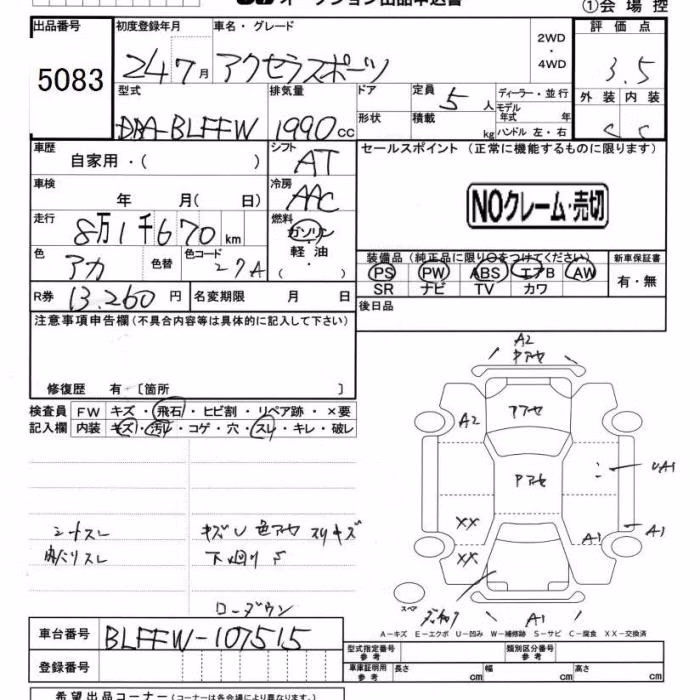 オークション出品申込書
①会場控
出品番号
5083
初度登録年月
24 7月
車名・グレード
アクセラスポーツ
2WD
・
4WD
評価点
3.5
外装 内装
C C
型式
DBA-BLFFW
排気量
1990cc
ドア
形状
定員
5人
積載
kg
ディーラー・並行
モデル年式 年
ハンドル 左・右
車歴
自家用・( )
シフト
AT
セールスポイント (正常に機能するものに限ります)
NOクレーム・売切
車検
年 月( 日)
冷房
AAC
走行
8万1千670km
燃料
ガソリン
・
軽油
・
( )
色
アカ
色替
色コード
27A
装備品(純正品に限り○をつけてください)
PS PW ABS エアB AW
SR ナビ TV カワ
新車保証書
有・無
R券 13,260円
名変期限 月 日
後日品
注意事項申告欄(不具合内容等は具体的に記入して下さい)
修復歴 有・〔箇所 〕
検査員
記入欄
FW キズ・飛石・ヒビ割・リペア跡・×要
内装 キズ・汚レ・コゲ・穴・スレ・キレ・破レ
シートスレ
内バリスレ
キズU 色アセ スリキズ
下廻りS
ローダウン
A2
アセ
アセ
A2
アセ
UA1
XX
XX
A1
A1
スペア
A1
A−キズ E−エクボ U−凹み W−補修跡 S−サビ C−腐食 XX−交換済
車台番号 BLFFW-107515
登録番号
型式指定番号
参考
類別区分番号
参考
車庫証明用
参考
長さ cm
幅 cm
高さ cm
希望出品コーナー(コーナーは各会場により異なります。)